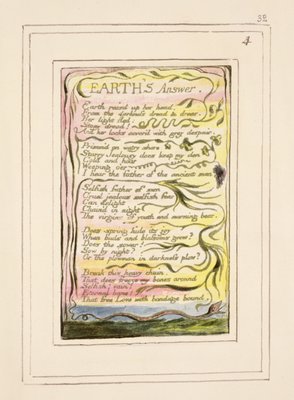 32
4
EARTH'S Answer.
Earth rais'd up her head,
From the darkness dread & drear.
Her light fled:
Stony dread!
And her locks cover'd with grey despair.
Prison'd on watry shore
Starry Jealousy does keep my den
Cold and hoar
Weeping o'er
I hear the father of the ancient men
Selfish father of men
Cruel jealous selfish fear
Can delight
Chain'd in night
The virgins of youth and morning bear.
Does spring hide its joy
When buds and blossoms grow?
Does the sower?
Sow by night?
Or the plowman in darkness plow?
Break this heavy chain,
That does freeze my bones around
Selfish! vain!
Eternal bane!
That free Love with bondage bound.